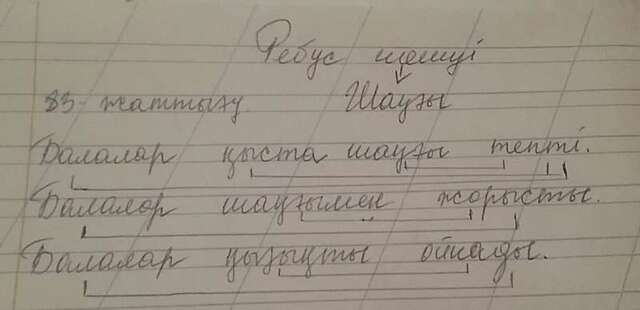 Ребус шешуі
83-жаттығу Шаңғы
Балалар қыста шаңғы тепті.
Балалар шаңғымен жарысты.
Балалар қызықты ойнады.